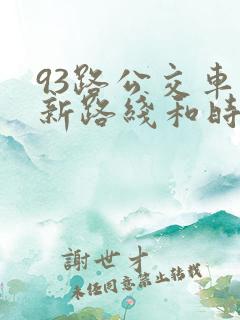 93路公交車
新路綫和時
謝世才
未经同意禁止转载